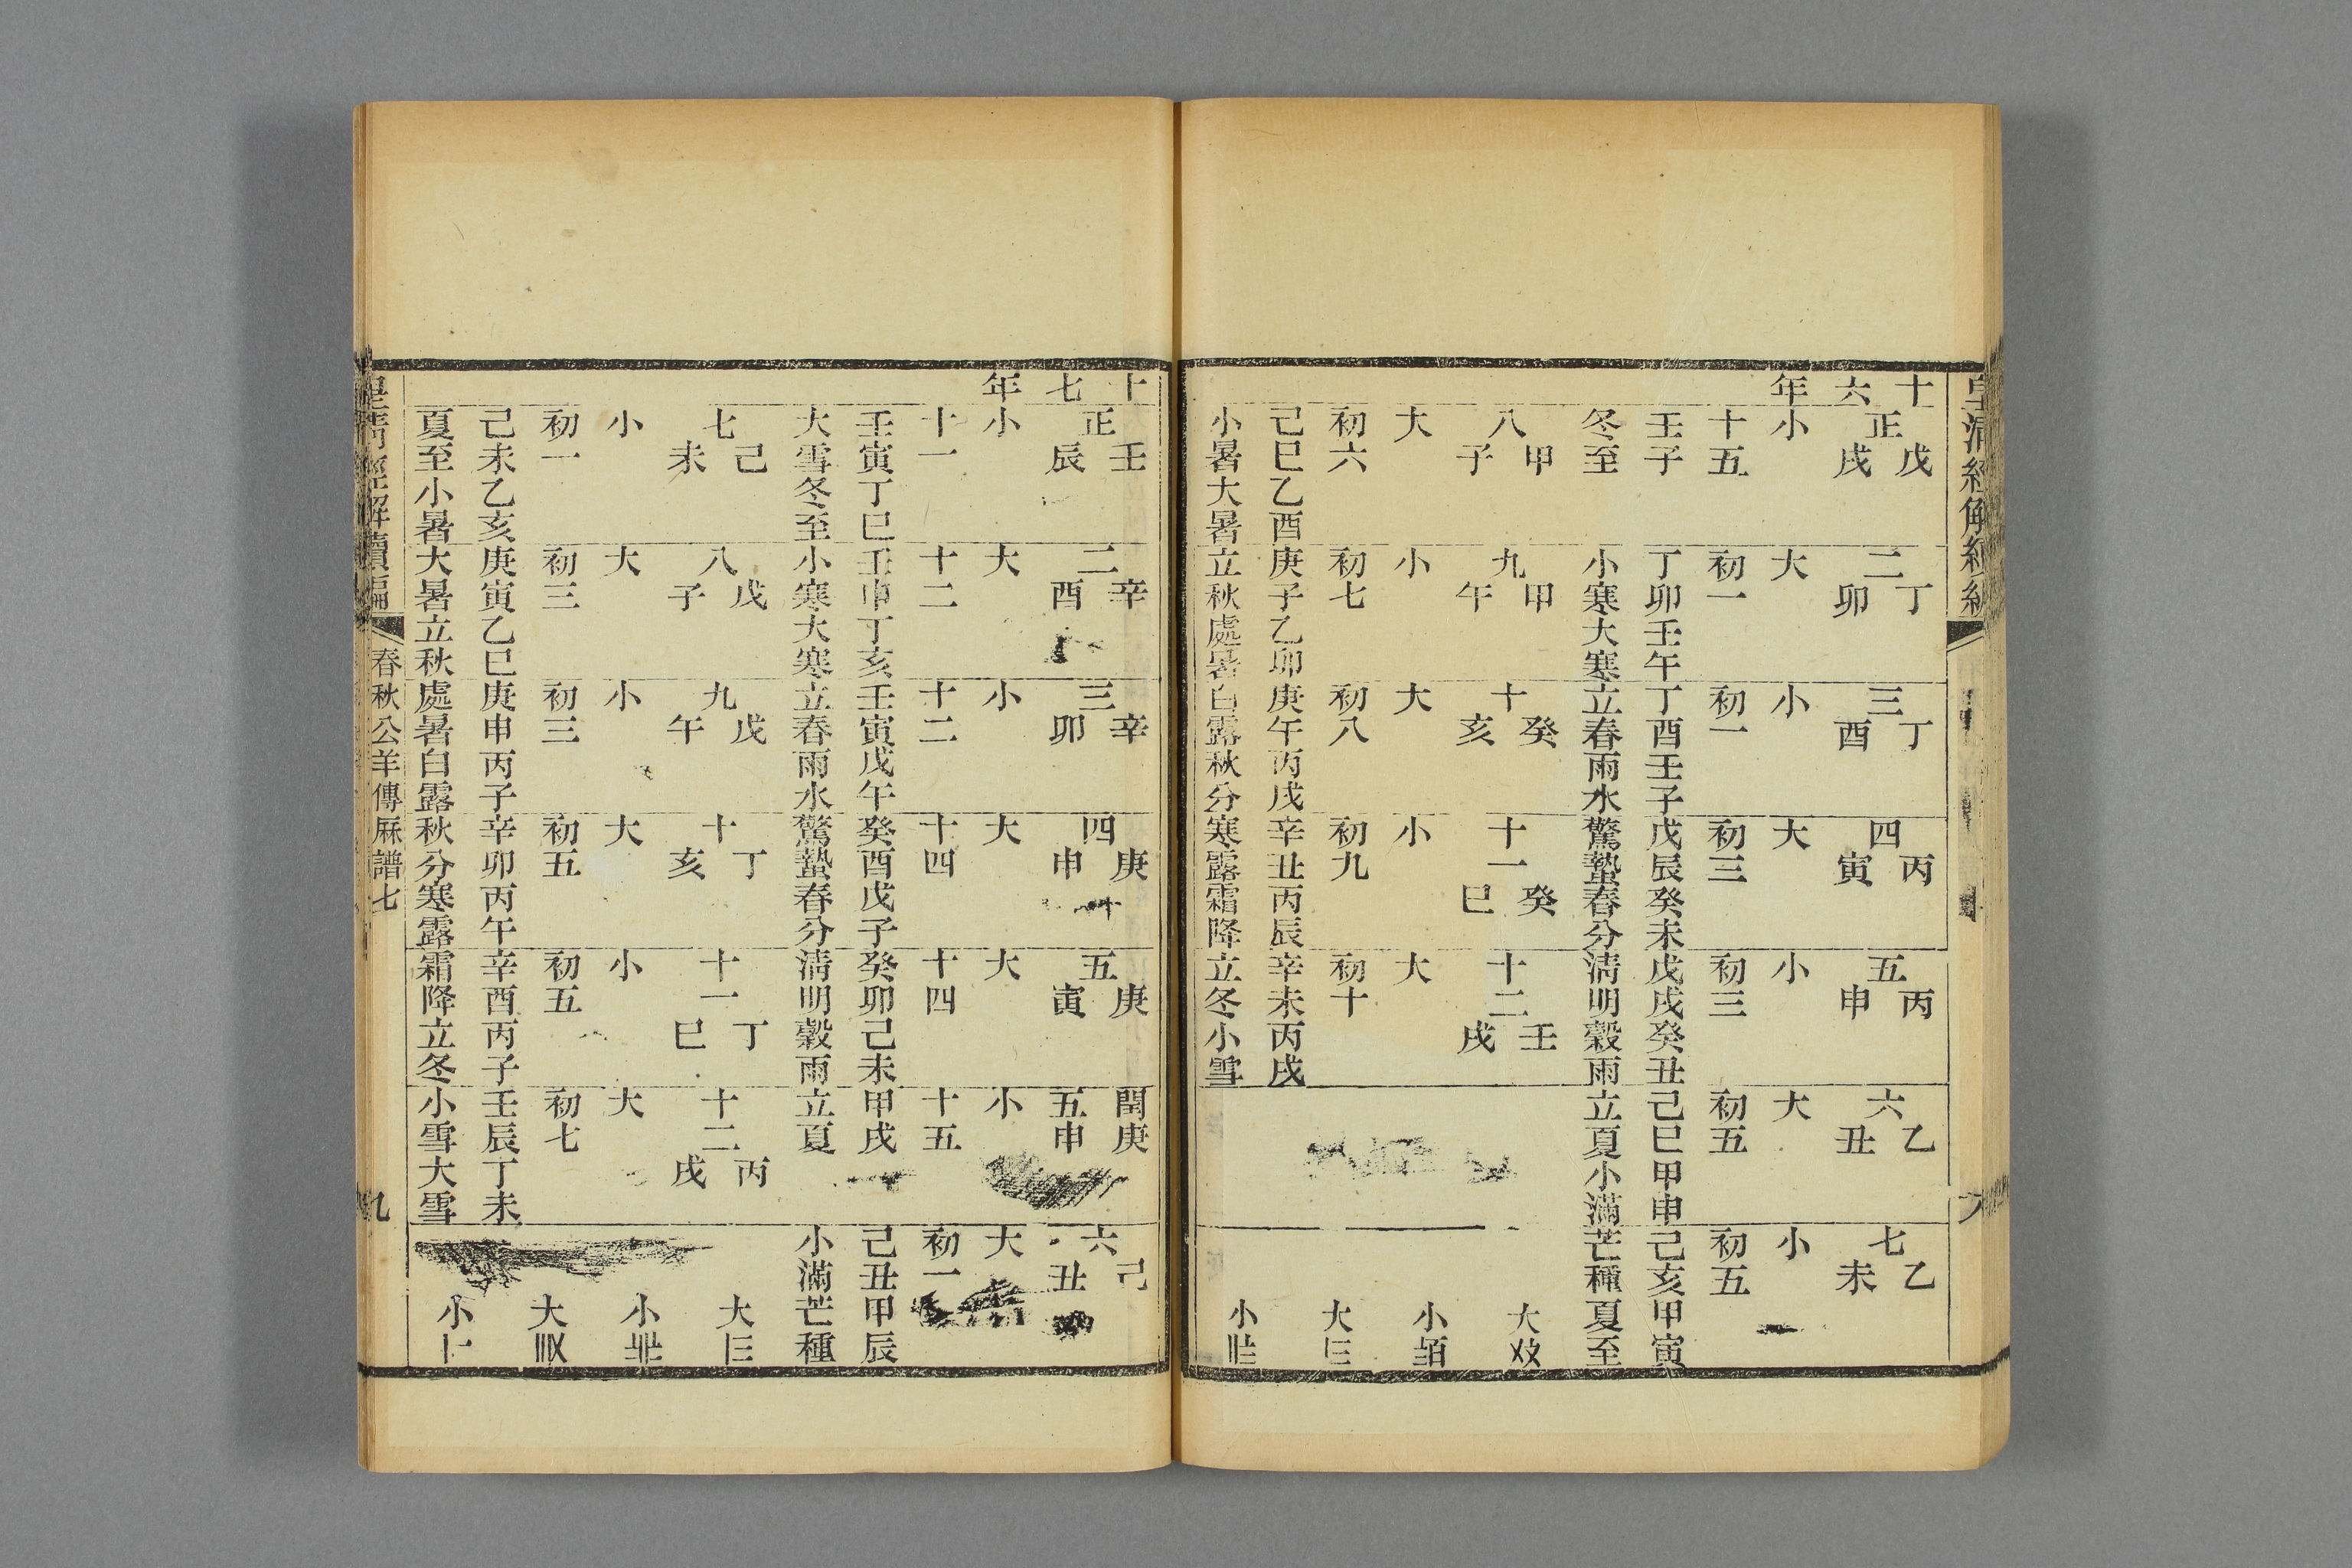 皇清經解
十六年
正 戊戌
小
十五
壬子
冬至
二 丁卯
大
初一
丁卯壬午
小寒大寒
三 丁酉
小
初一
丁酉壬子
立春雨水
四 丙寅
大
初三
戊辰癸未
驚蟄春分
五 丙申
小
初三
戊戌癸丑
淸明穀雨
六 乙丑
大
初五
己巳甲申
立夏小滿
七 乙未
小
初五
己亥甲寅
芒種夏至
八 甲子
大
初六
己巳乙酉
小暑大暑
九 甲午
小
初七
庚子乙卯
立秋處暑
十 癸亥
大
初八
庚午丙戌
白露秋分
十一 癸巳
小
初九
辛丑丙辰
寒露霜降
十二 壬戌
大
初十
辛未丙戌
立冬小雪
大
小
大
小
十七年
正 壬辰
小
十一
壬寅丁巳
大雪冬至
二 辛酉
大
十二
壬申丁亥
小寒大寒
三 辛卯
小
十二
壬寅戊午
立春雨水
四 庚申
大
十四
癸酉戊子
驚蟄春分
五 庚寅
大
十四
癸卯己未
淸明穀雨
閏五 庚申
小
十五
甲戌
立夏
六 己丑
大
初一
己丑甲辰
小滿芒種
七 己未
小
初一
己未乙亥
夏至小暑
八 戊子
大
初三
庚寅乙巳
大暑立秋
九 戊午
小
初三
庚申丙子
處暑白露
十 丁亥
大
初五
辛卯丙午
秋分寒露
十一 丁巳
小
初五
辛酉丙子
霜降立冬
十二 丙戌
大
初七
壬辰丁未
小雪大雪
大
小
大
小
皇淸經解續編 春秋公羊傳厤譜七 九